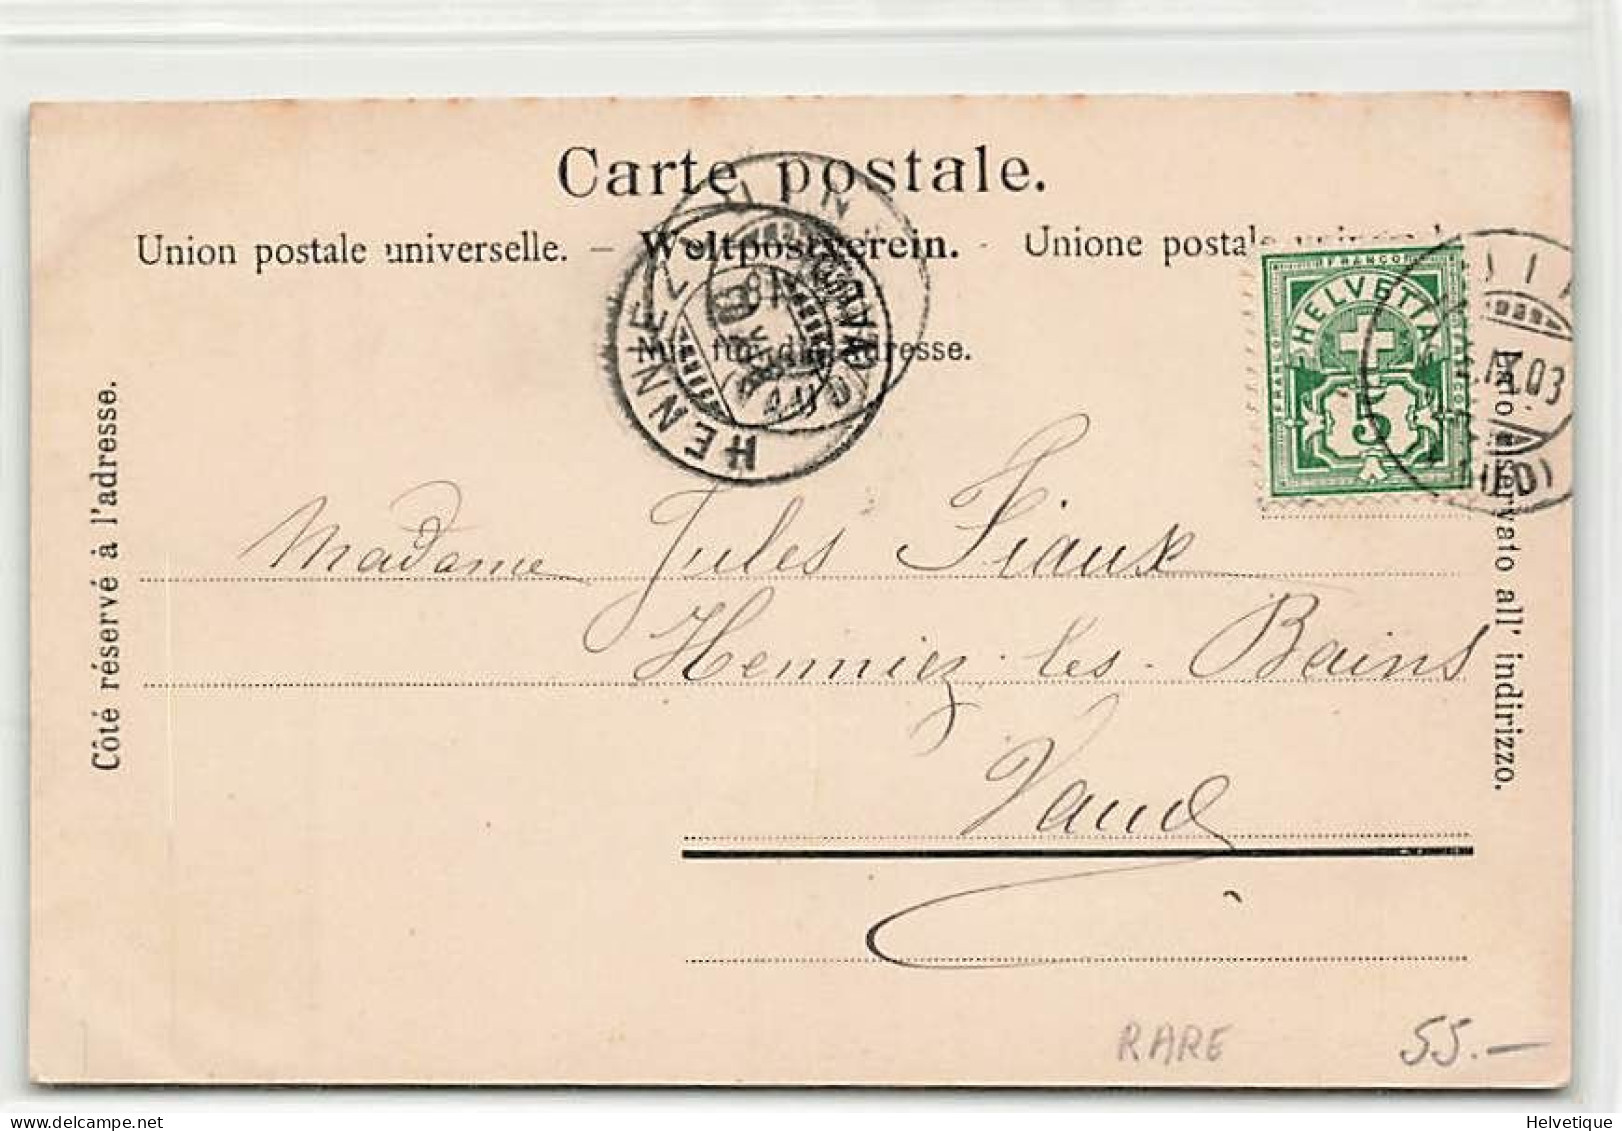 Carte postale.
Union postale universelle. — Weltpostverein. - Unione postale
Nur für die Adresse.
Côté réservé à l'adresse.
Lato riservato all' indirizzo.
HENNIEZ
FRANCO
HELVETIA
5
IX.03
(VAUD)
Madame Jules Fiaux
Henniez-les-Bains
Vaud
RARE
55.—
Helvetique